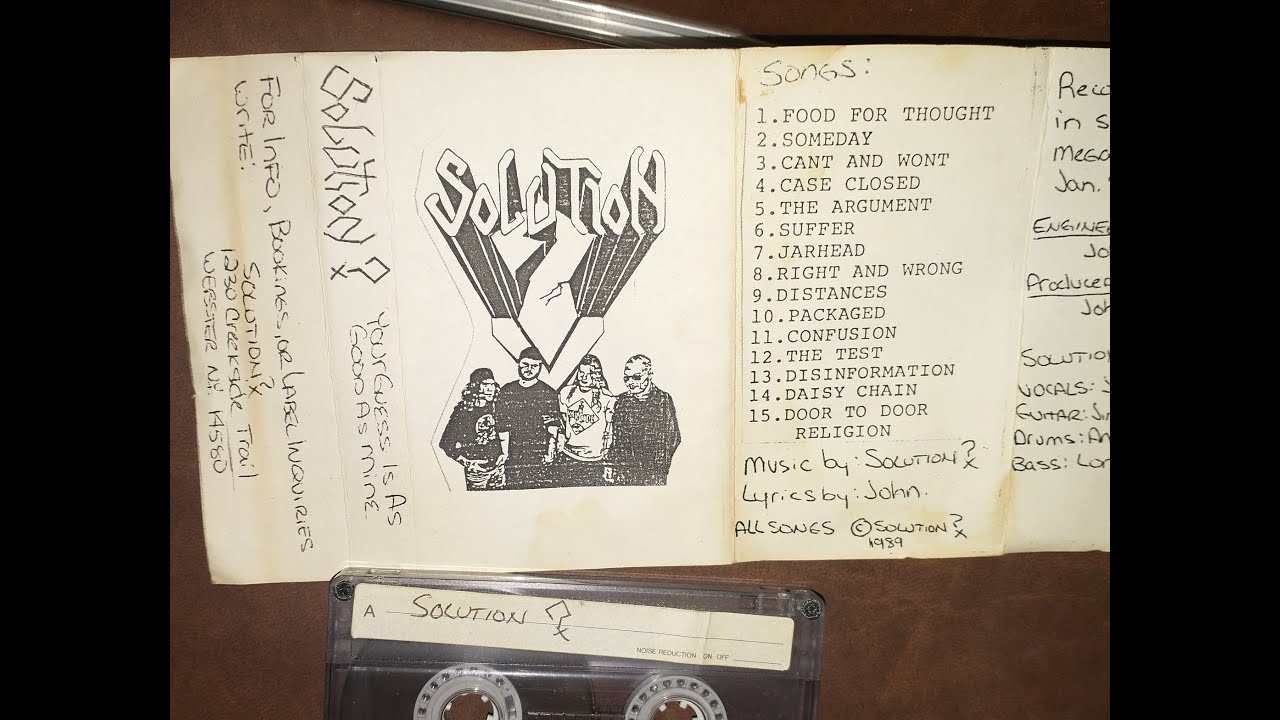 FOR INFO, BOOKINGS, OR LABEL INQUIRIES
WRITE:
SOLUTION?
1230 Creekside Trail
WEBSTER N.Y. 14580
SOLUTION?
YOUR GUESS IS AS
GOOD AS MINE
SOLUTION
SONGS:
1.FOOD FOR THOUGHT
2.SOMEDAY
3.CANT AND WONT
4.CASE CLOSED
5.THE ARGUMENT
6.SUFFER
7.JARHEAD
8.RIGHT AND WRONG
9.DISTANCES
10.PACKAGED
11.CONFUSION
12.THE TEST
13.DISINFORMATION
14.DAISY CHAIN
15.DOOR TO DOOR
RELIGION
Music by: SOLUTION?
Lyrics by: John.
ALL SONGS © SOLUTION?
1989
in
Jan.
SOLUTION
VOCALS:
GUITAR:
Drums:
Bass:
A SOLUTION ?
NOISE REDUCTION ON OFF